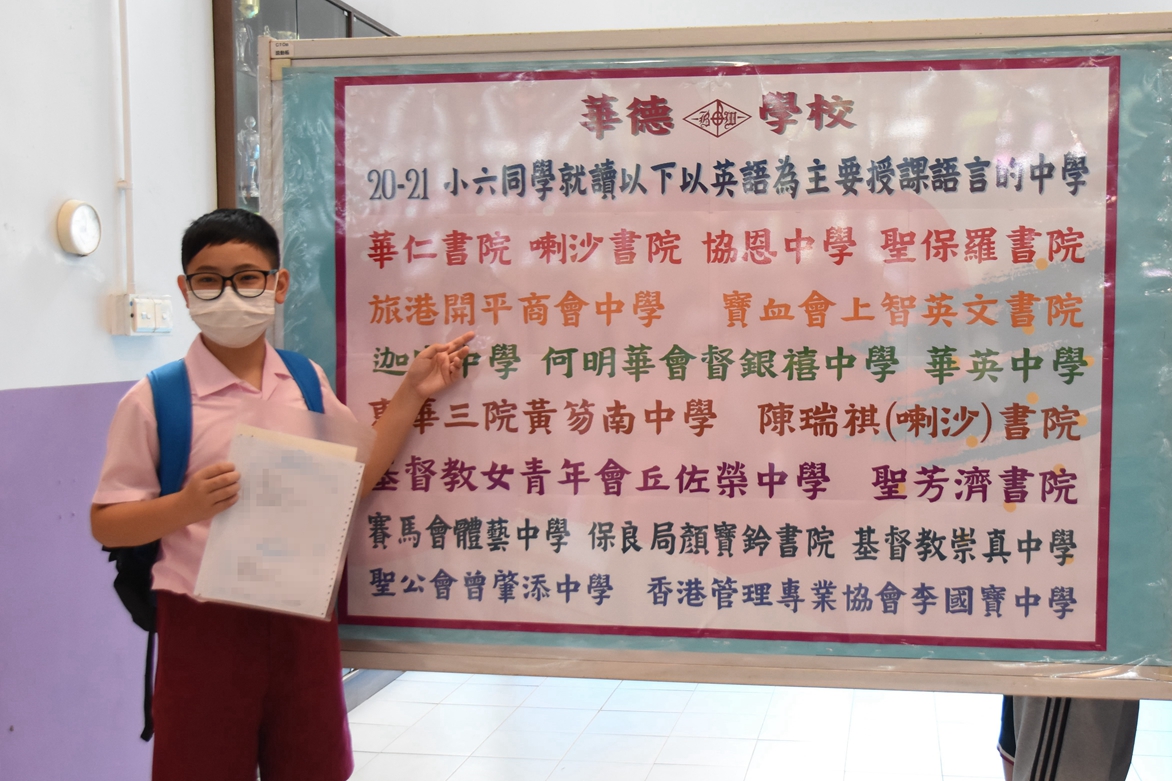 華德 學校
20-21 小六同學就讀以下以英語為主要授課語言的中學
華仁書院 喇沙書院 協恩中學 聖保羅書院
旅港開平商會中學 寶血會上智英文書院
迦 中學 何明華會督銀禧中學 華英中學
華三院黃笏南中學 陳瑞祺(喇沙)書院
基督教女青年會丘佐榮中學 聖芳濟書院
賽馬會體藝中學 保良局顏寶鈴書院 基督教崇真中學
聖公會曾肇添中學 香港管理專業協會李國寶中學